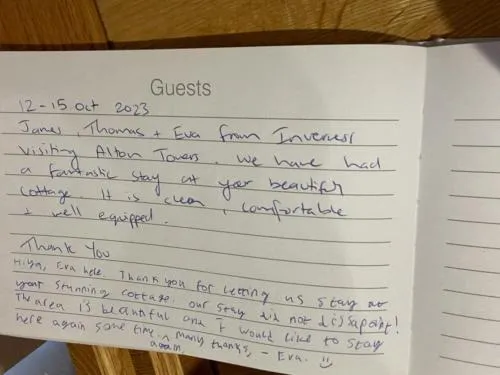 Guests
12-15 Oct 2023
James, Thomas + Eva from Inverness
visiting Alton Towers. We have had
a fantastic stay at your beautiful
cottage. It is clean, comfortable
+ well equipped.
Thank You
Hiya, Eva here. Thank you for letting us stay at
your stunning cottage. Our stay did not dissapoint!
The area is beautiful and I would like to stay
here again some time. Many thanks, - Eva. :)
again,